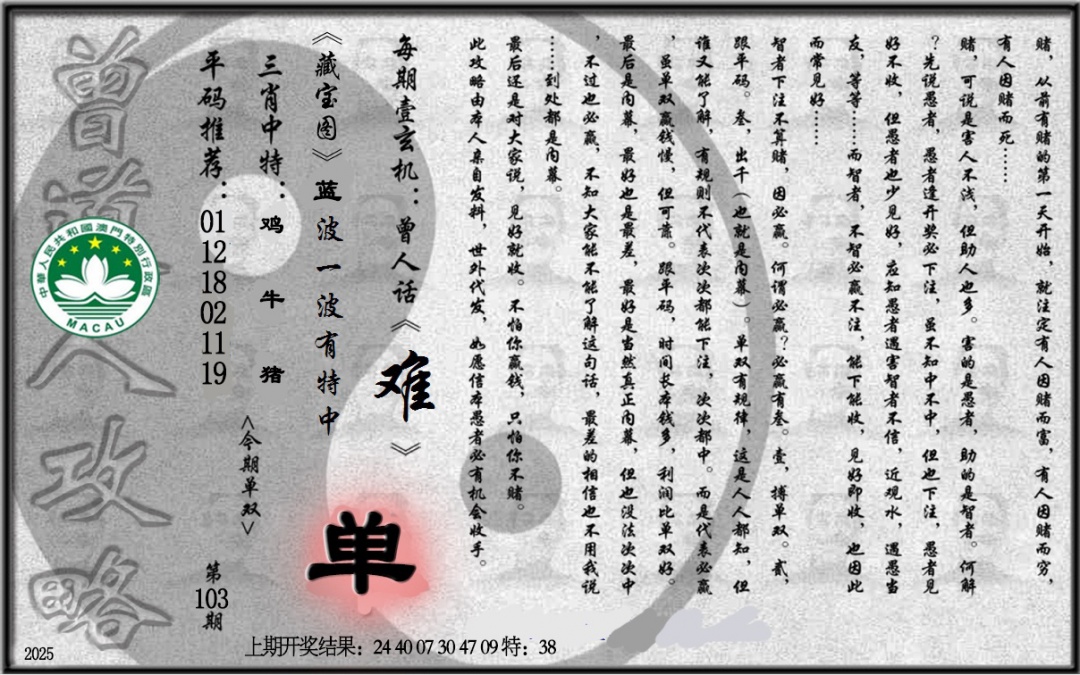 赌，从前有赌的第一天开始，就注定有人因赌而富，有人因赌而穷，
有人因赌而死……
赌，可说是害人不浅，但助人也多。害的是愚者，助的是智者。何解
？先说愚者，愚者逢开奖必下注，虽不知中不中，但也下注，愚者见
好不收，但愚者也少见好，应知愚者遇害智者不信，近观水，遇愚当
友，等等……而智者，不智必赢不注，能下能收，见好即收，也因此
而常见好……
智者下注不算赌，因必赢。何谓必赢？必赢有叁。壹，搏单双。贰，
跟平码。叁，出千（也就是内幕）。单双有规律，这是人人都知，但
谁又能了解，有规则不代表次次都能下注，次次都中。而是代表必赢
，虽单双赢钱慢，但可靠。跟平码，时间长本钱多，利润比单双好。
最后是内幕，最好也是最差，最好是当然真正内幕，但也没法次次中
，不过也必赢，不知大家能不能了解这句话，最差的相信也不用我说
……到处都是内幕。
最后还是对大家说，见好就收。不怕你赢钱，只怕你不赌。
此攻略由本人亲自发料，世外代发，如愿信本愚者必有机会收手。
每期壹玄机：曾人话《难》
《藏宝图》蓝波一波有特中
单
三肖中特：鸡 牛 猪
<今期单双>
平码推荐：
01
12
18
02
11
19
第
103
期
曾道人攻略
中華人民共和國澳門特別行政區
MACAU
上期开奖结果：24 40 07 30 47 09 特：38
2025